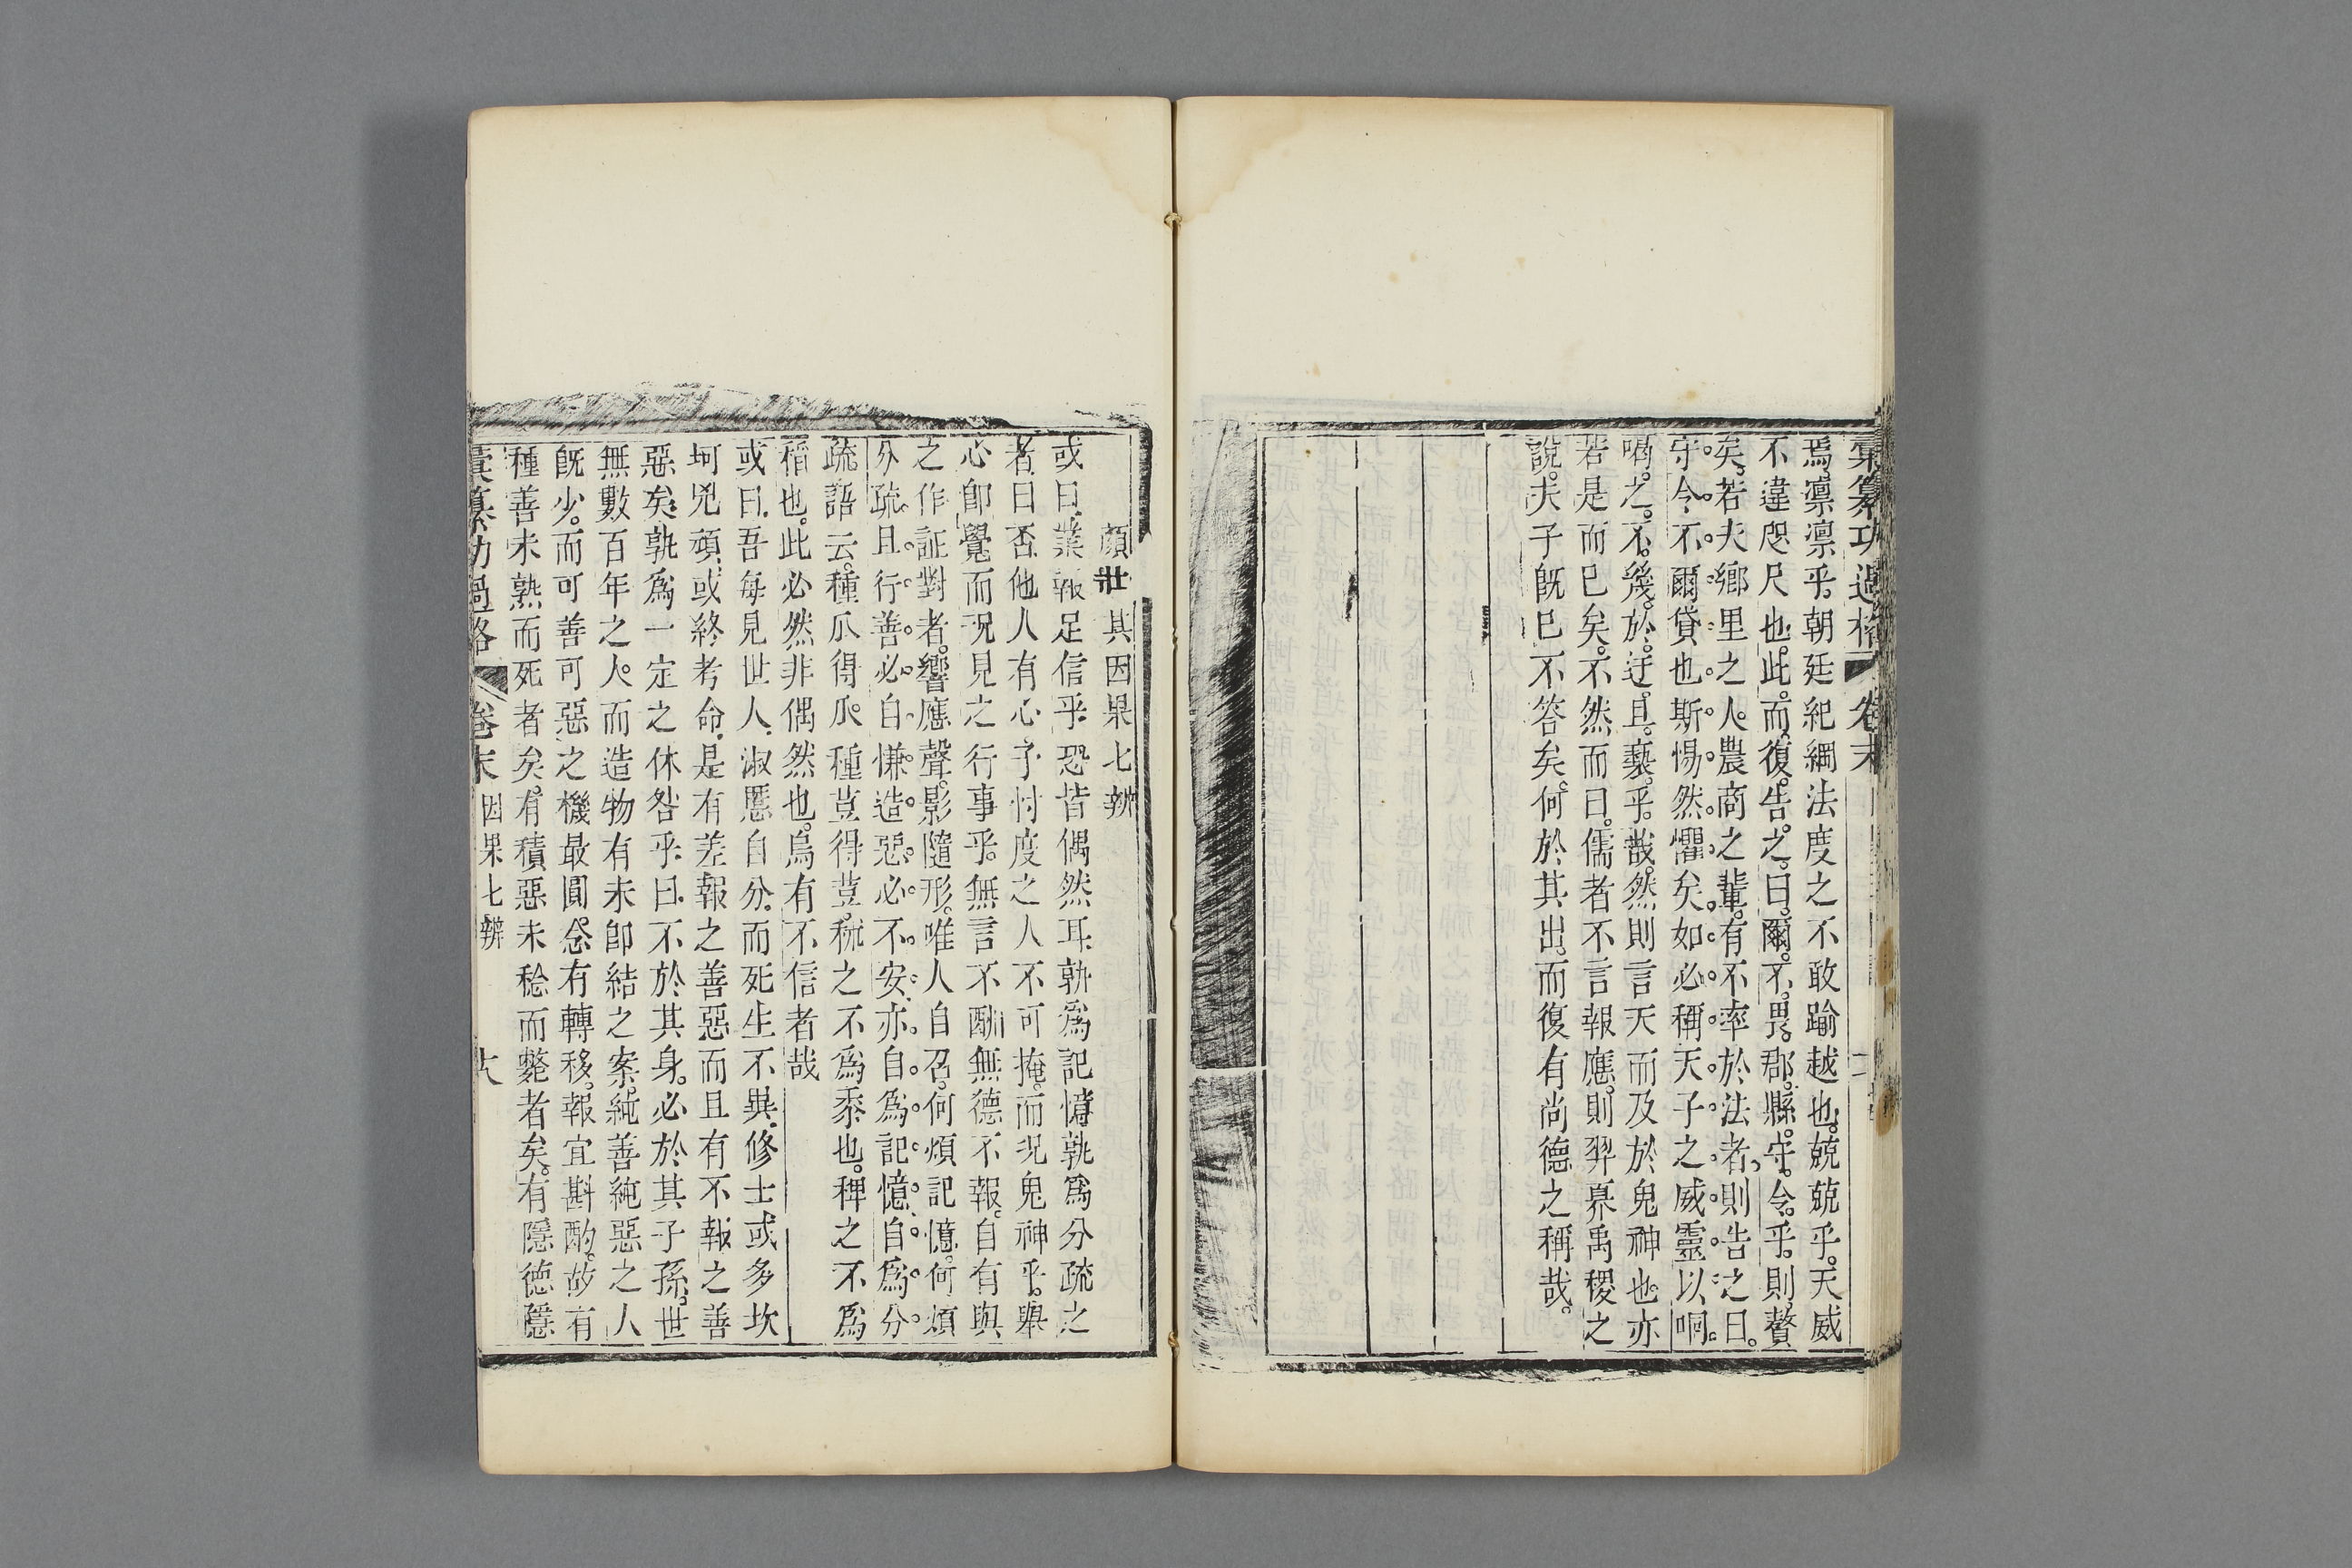 彙纂功過格 卷末
焉。凛凛乎。朝廷紀綱法度之不敢踰越也。兢兢乎。天威
不違咫尺也。此。而。復。告。之。曰。爾。不。畏。郡。縣。守。令。乎。則。贅
矣。若夫鄉里之人。農商之輩。有不率於法者。則告之曰。
守。令。不。爾。貸。也。斯。惕。然。懼。矣。如。必。稱。天。子。之。威。靈。以。哃。
喝。之。不。幾。於。迂。且。褻。乎。哉。然則言天而及於鬼神也。亦
若是而已矣。不然而曰。儒者不言報應。則羿奡禹稷之
說。夫子旣已不答矣。何於其出。而復有尚德之稱哉。
顏壯其因果七辨
或曰。業報足信乎。恐皆偶然耳。孰爲記憶。孰爲分疏之
者。曰否。他人有心。予忖度之。人不可掩。而况鬼神乎。舉
心卽覺。而况見之行事乎。無言不酬。無德不報。自有與
之作証對者。響應聲。影隨形。唯人自召。何煩記憶。何煩
分疏。且。行。善。必。自。慊。造。惡。必。不。安。亦。自。爲。記。憶。自。爲。分。
疏。語云。種瓜得瓜。種荳得荳。稊之不爲黍也。稗之不爲
稻也。此必然非偶然也。烏有不信者哉
或曰。吾每見世人。淑慝自分。而死生不異。修士或多坎
坷。兇頑或終考命。是有差報之善惡。而且有不報之善
惡矣。孰爲一定之休咎乎。曰。不於其身。必於其子孫。世
無數百年之人。而造物有未卽結之案。純善純惡之人
旣少。而可善可惡之機最圓。念有轉移。報宜斟酌。故有
種善未熟而死者矣。有積惡未稔而斃者矣。有隱德隱
彙纂功過格 卷末 因果七辨 六